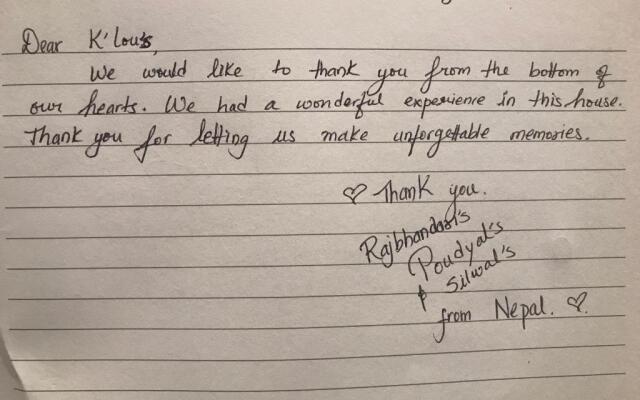 Dear K'Lou's,
We would like to thank you from the bottom of
our hearts. We had a wonderful experience in this house.
Thank you for letting us make unforgettable memories.
♡ Thank you.
Rajbhandari's
Poudyal's
& Silwal's
from Nepal. ♡